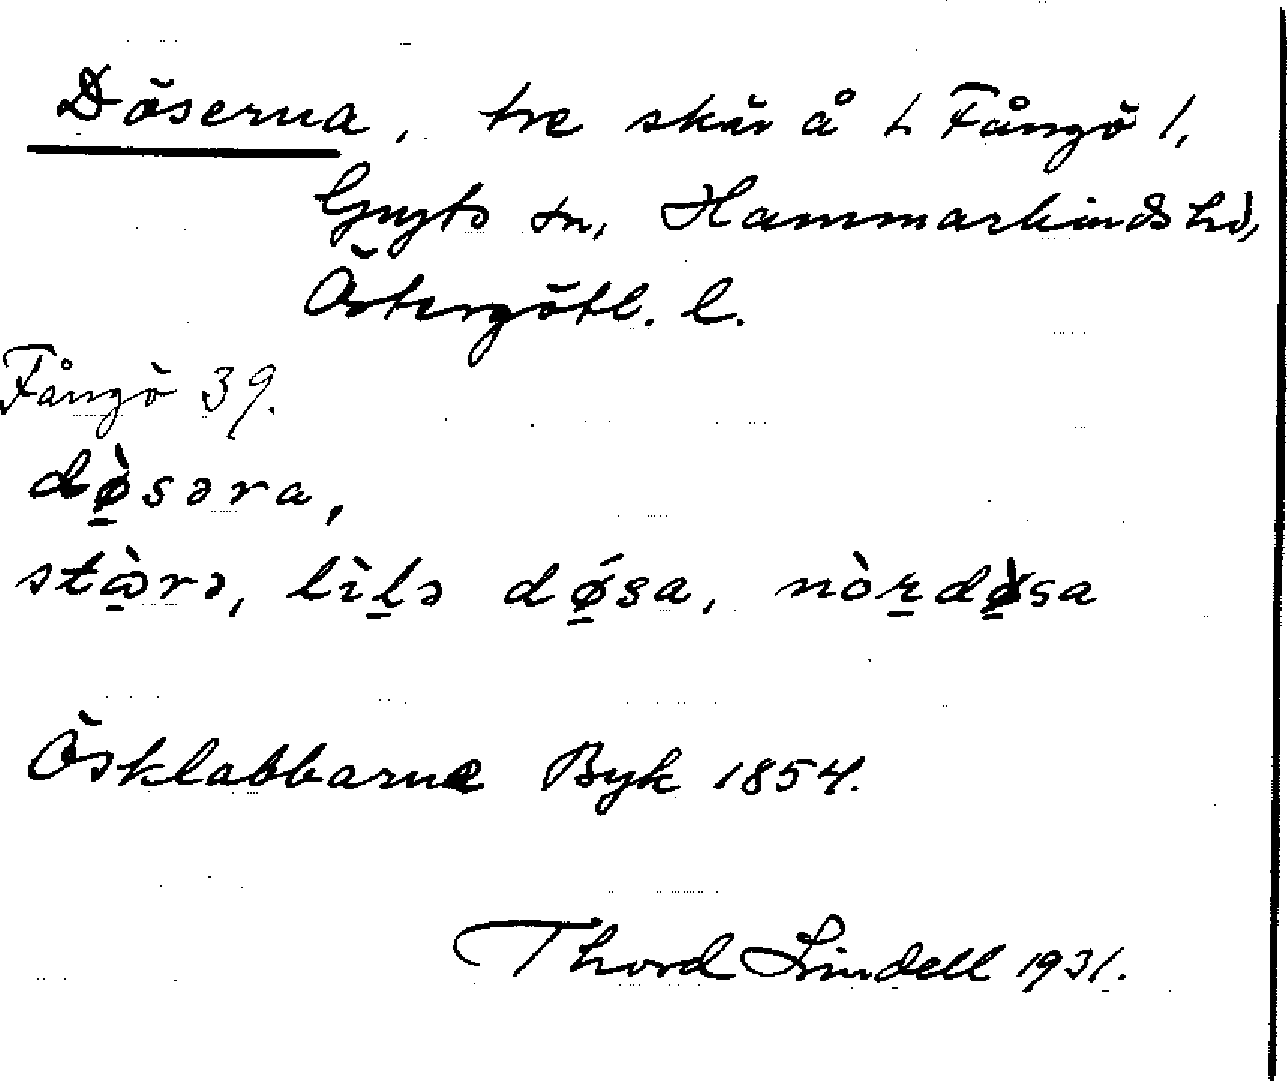 Döserna, tre skär å t Fångö 1,
Gryts sn, Hammarkinds hd,
Östergötl. l.
Fångö 39.
dø̀səra,
stòrə, lìlə dǿsa, nòrdø̀sa
Ösklabbarne Byk 1854.
Thord Lindell 1931.